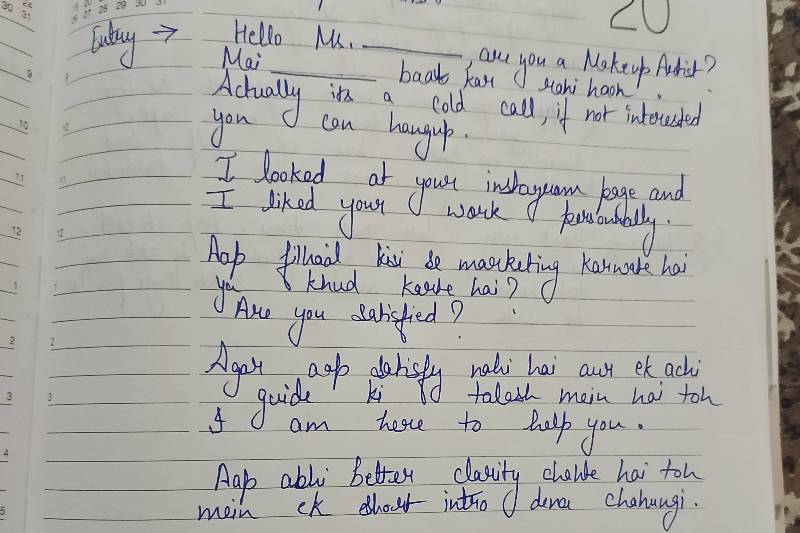 20
Entry → Hello Ms. ________, are you a Makeup Artist?
Mai ________ baat kar rahi hoon.
Actually its a cold call, if not interested
you can hangup.
I looked at your instagram page and
I liked your work personally.
Aap filhaal kisi se marketing karwate hai
ya khud karte hai?
Are you satisfied?
Agar aap satisfy nahi hai aur ek achi
guide ki talash mein hai toh
I am here to help you.
Aap abhi better clarity chahte hai toh
mein ek short intro dena chahungi.
30 31
24 31
26 27 28 29 30 31
9
10
11
12
1
2
3
4
5
9
10
11
12
1
2
3